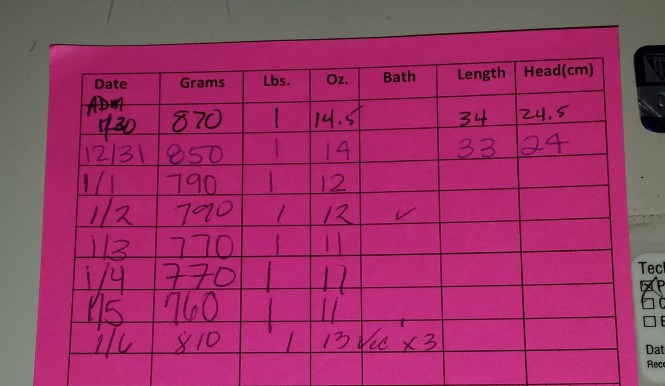 Date Grams Lbs. Oz. Bath Length Head(cm)
ADM
12/30 870 1 14.5 34 24.5
12/31 850 1 14 33 24
1/1 790 1 12
1/2 790 1 12 ✓
1/3 770 1 11
1/4 770 1 11
1/5 760 1 11
1/6 810 1 13 x3
Tec
Dat
Rece